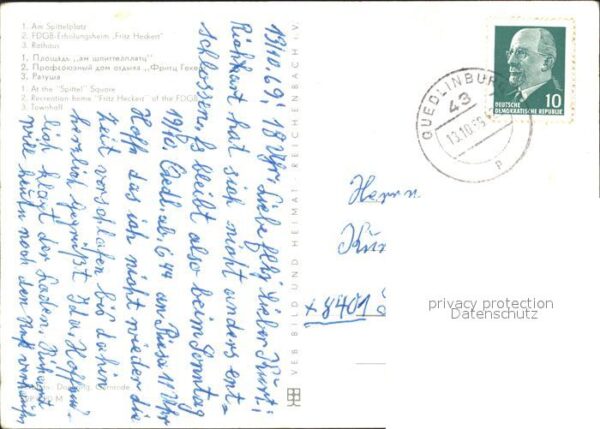 1. Am Spittelplatz
2. FDGB-Erholungsheim „Fritz Heckert"
3. Rathaus
1. Площадь „ам шпиттелплатц"
2. Профсоюзный дом отдыха „Фритц Геке
3. Ратуша
1. At the "Spittel" Square
2. Recreation home "Fritz Heckert" of the FDGB
3. Townhall
13.10.69, 18 Uhr, Liebe lieber Kurt!
Richhart hat sich nicht anders ent=
schlossen, Es bleibt also beim Sonntag
19/10. Quedl. ab. 6 44 an Riesa 11 Uhr
Hoffe das ich nicht wieder die
Zeit verschlafen bis dahin
herzlich gegrüßt Ida, Hoffend=
lich klagt der Laden, Richhart
will heute noch den verkaufen
VEB BILD UND HEIMAT REICHENBACH i. V.
QUEDLINBURG
43
13.10.69
P
10
DEUTSCHE
DEMOKRATISCHE REPUBLIK
Herrn
Kur
x 8401
privacy protection
Datenschutz